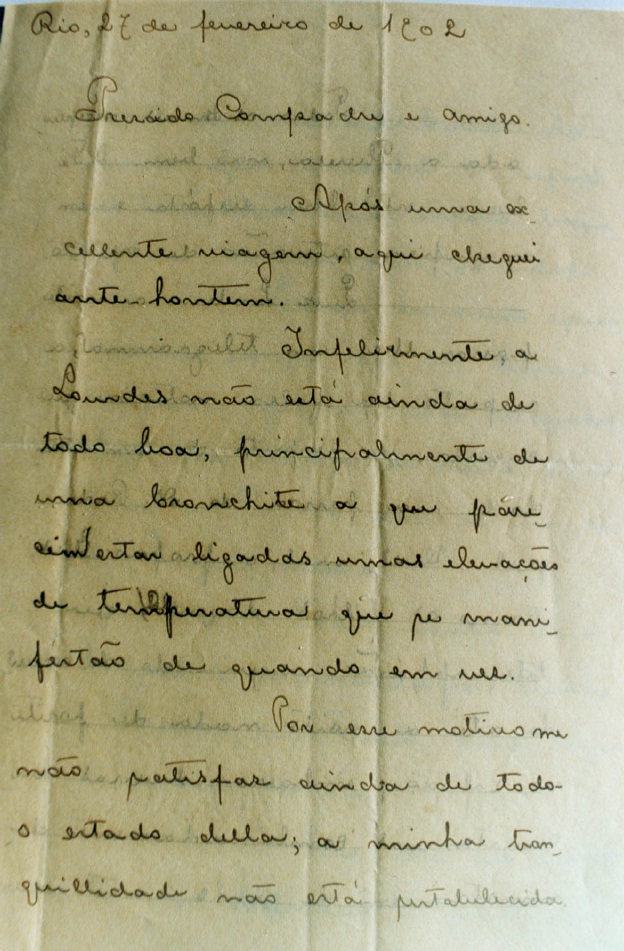 Rio, 27 de fevereiro de 1902
Presado Compadre e amigo.
Após uma ex-
cellente viagem, aqui cheguei
ante-hontem.
Infelizmente, a
Lourdes não está ainda de
todo boa, principalmente de
uma bronchite a que pare-
cem estar ligadas umas elevações
de temperatura que se mani-
festão de quando em vez.
Por esse motivo me
não satisfaz ainda de todo
o estado della; a minha tran-
quillidade não está restabelecida